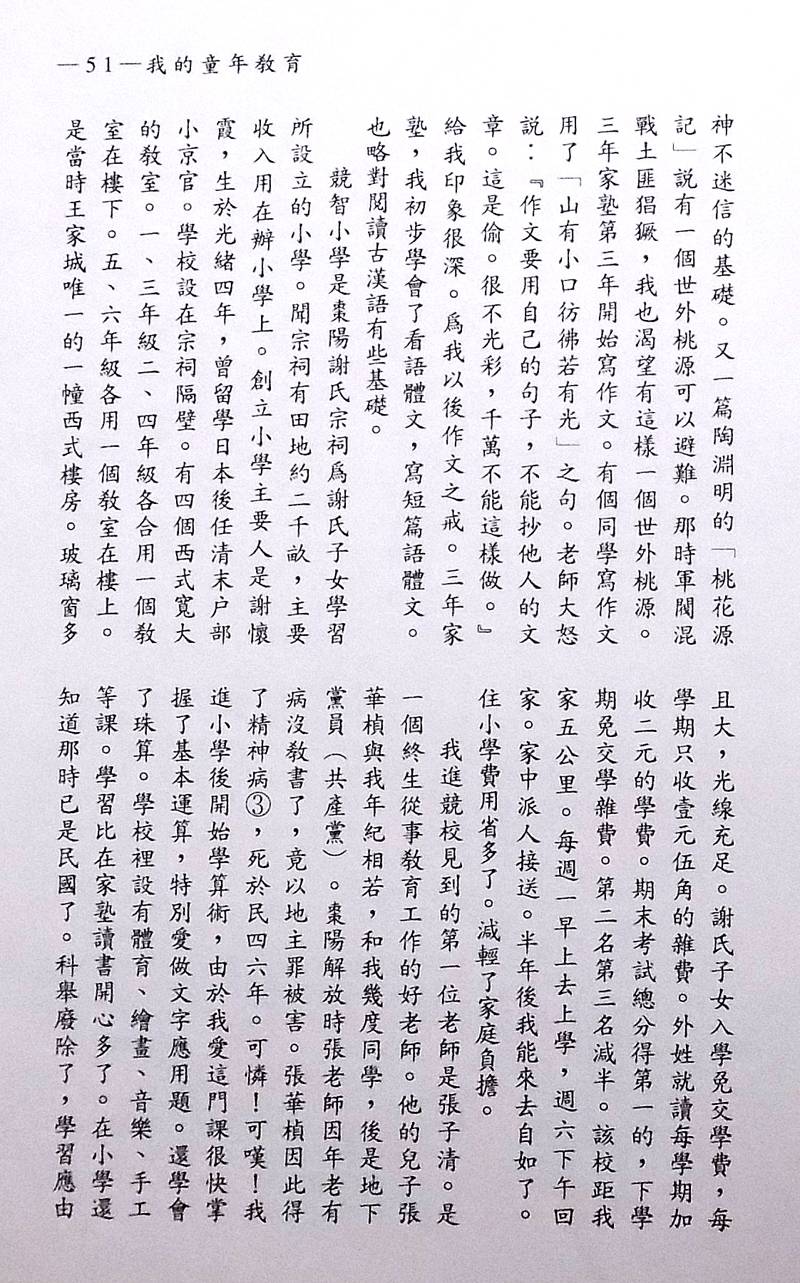 —51—我的童年教育
神不迷信的基礎。又一篇陶淵明的「桃花源
記」説有一個世外桃源可以避難。那時軍閥混
戰土匪猖獗，我也渴望有這樣一個世外桃源。
三年家塾第三年開始寫作文。有個同學寫作文
用了「山有小口彷彿若有光」之句。老師大怒
説：『作文要用自己的句子，不能抄他人的文
章。這是偷。很不光彩，千萬不能這樣做。』
給我印象很深。爲我以後作文之戒。三年家
塾，我初步學會了看語體文，寫短篇語體文。
也略對閱讀古漢語有些基礎。
競智小學是棗陽謝氏宗祠爲謝氏子女學習
所設立的小學。聞宗祠有田地約二千畝，主要
收入用在辦小學上。創立小學主要人是謝懷
霞，生於光緒四年，曾留學日本後任清末户部
小京官。學校設在宗祠隔壁。有四個西式寬大
的教室。一、三年級二、四年級各合用一個教
室在樓下。五、六年級各用一個教室在樓上。
是當時王家城唯一的一幢西式樓房。玻璃窗多
且大，光線充足。謝氏子女入學免交學費，每
學期只收壹元伍角的雜費。外姓就讀每學期加
收二元的學費。期末考試總分得第一的，下學
期免交學雜費。第二名第三名減半。該校距我
家五公里。每週一早上去上學，週六下午回
家。家中派人接送。半年後我能來去自如了。
住小學費用省多了。減輕了家庭負擔。
我進競校見到的第一位老師是張子清。是
一個終生從事教育工作的好老師。他的兒子張
華楨與我年紀相若，和我幾度同學，後是地下
黨員（共產黨）。棗陽解放時張老師因年老有
病沒教書了，竟以地主罪被害。張華楨因此得
了精神病③，死於民四六年。可憐！可嘆！我
進小學後開始學算術，由於我愛這門課很快掌
握了基本運算，特別愛做文字應用題。還學會
了珠算。學校裡設有體育、繪畫、音樂、手工
等課。學習比在家塾讀書開心多了。在小學還
知道那時已是民國了。科舉廢除了，學習應由